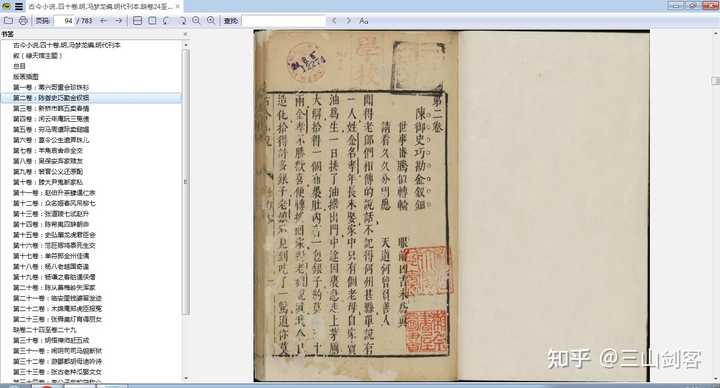 古今小说.四十卷.明.冯梦龙编.明代刊本.缺卷24至...
页码:
94
/ 783
查找:
书签
古今小说.四十卷.明.冯梦龙编.明代刊本
叙（绿天馆主题）
总目
版表插图
第一卷：蒋兴哥重会珍珠衫
第二卷：陈御史巧勘金钗钿
第三卷：新桥市韩五卖春情
第四卷：闲云庵阮三冤债
第五卷：穷马周遭际卖䭔媪
第六卷：葛令公生遣弄珠儿
第七卷：羊角哀舍命全交
第八卷：吴保安弃家赎友
第九卷：裴晋公义还原配
第十卷：滕大尹鬼断家私
第十一卷：赵伯升茶肆遇仁宗
第十二卷：众名姬春风吊柳七
第十三卷：张道陵七试赵升
第十四卷：陈希夷四辞朝命
第十五卷：史弘肇龙虎君臣会
第十六卷：范巨卿鸡黍死生交
第十七卷：单符郎全州佳偶
第十八卷：杨八老越国奇逢
第十九卷：杨谦之客舫遇侠僧
第二十卷：陈从善梅岭失浑家
第二十一卷：临安里钱婆留发迹
第二十二卷：木绵庵郑虎臣报冤
第二十三卷：张舜美灯宵得丽女
缺卷二十四至卷二十九
第三十卷：明悟禅师赶五戒
第三十一卷：闹阴司司马貌断狱
第三十二卷：游酆都胡母迪吟诗
第三十三卷：张古老种瓜娶文女
第二卷
陳御史巧勘金釵鈿
世事番騰似轉輪
眼前凶吉未為真
請看久久分明應
天道何曾負善人
聞得老郎們相傳的說話不記得何州甚縣單說有
一人姓金名孝年長未娶家中只有個老母自家賣
油為生一日挑了油擔出門中途因裏急走上茅厠
大解拾得一個布裹肚內有一包銀子約莫
十
兩金孝不勝歡喜便轉擔回家對老娘說道我今日
造化拾得許多銀子老娘看見到吃了一驚道你莫
知乎 @三山剑客